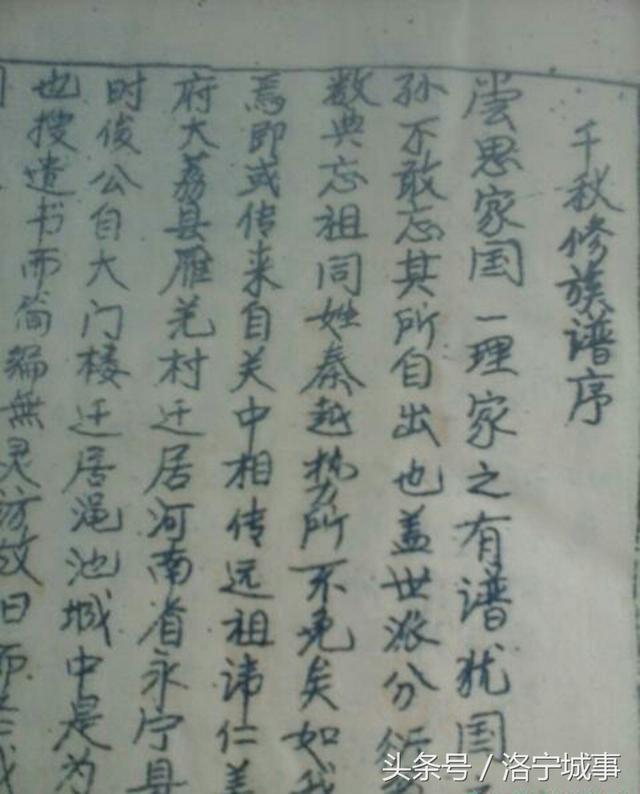 千秋修族谱序
尝思家国一理家之有谱犹国
孙不敢忘其所自出也盖世派分衍
数典忘祖同姓秦越势所不免矣如我
焉即或传来自关中相传远祖讳仁美
府大荔县雁羌村迁居河南省永宁县
时俊公自大门楼迁居渑池城中是为
也搜遗书而简编無灵访故旧而
头条号/洛宁城事